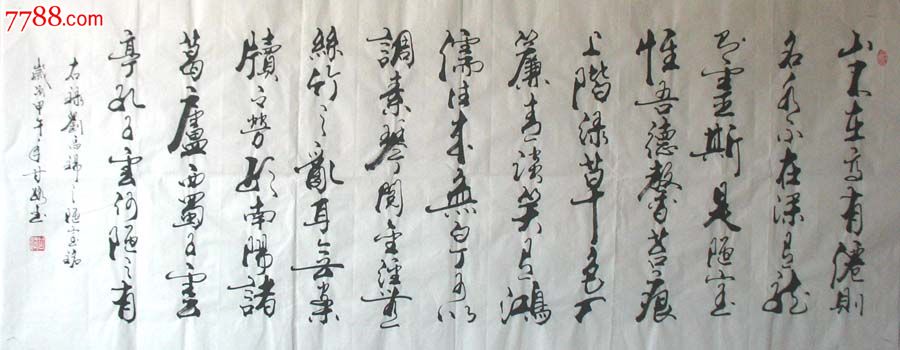 7788.com
中国收藏热线
山不在高有僊則
名水不在深有龍
則靈斯是陋室
惟吾德馨苔痕
上階綠草色入
簾青談笑有鴻
儒往來無白丁可以
調素琴閱金經無
絲竹之亂耳無案
牘之勞形南陽諸
葛廬西蜀子雲
亭孔子雲何陋之有
右錄劉禹錫之陋室銘
歲次甲午年書